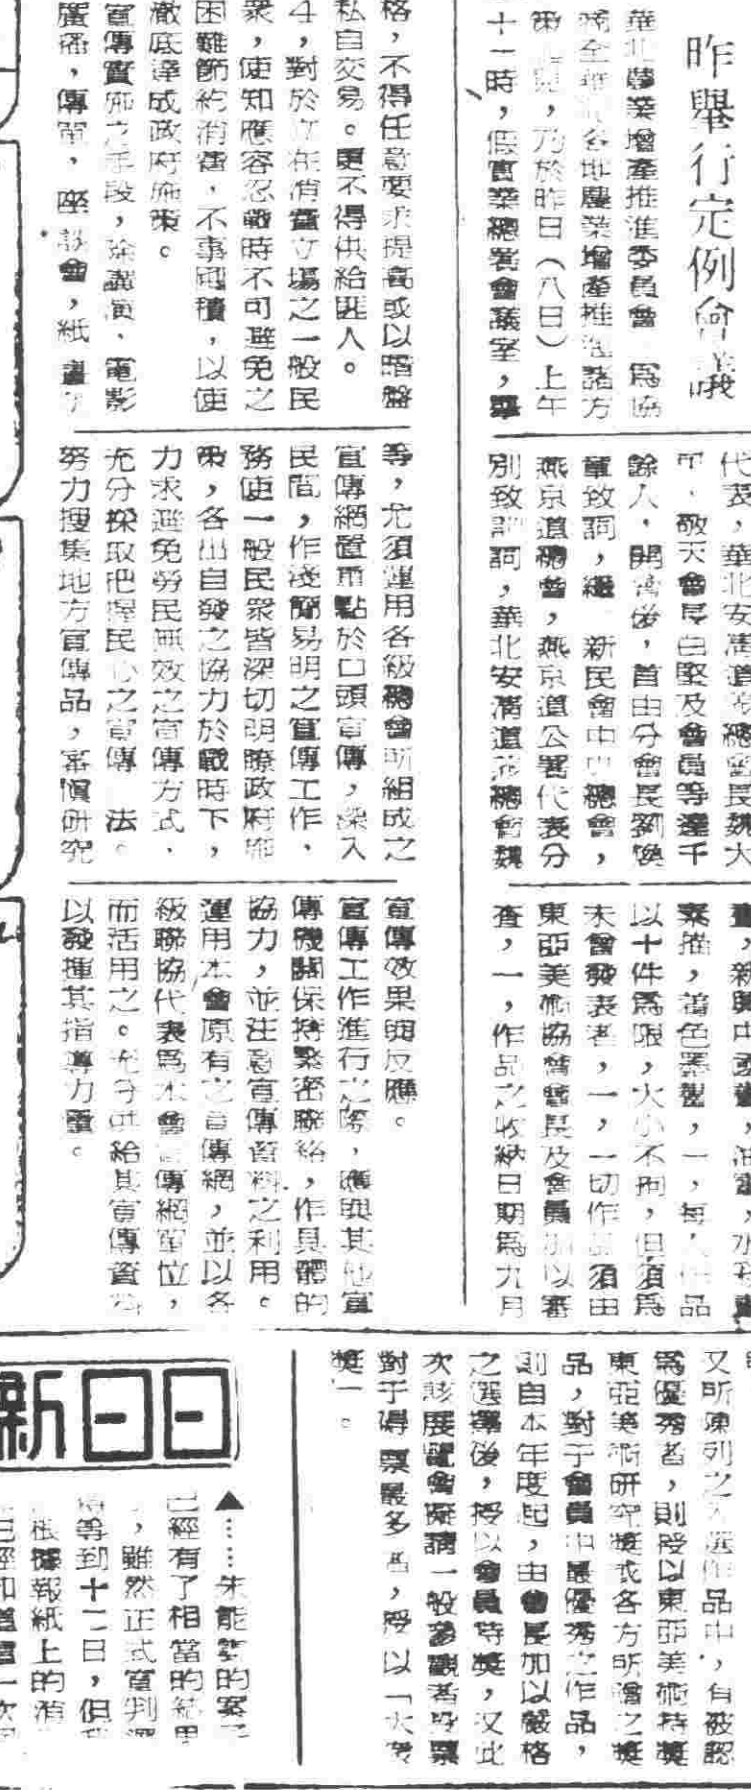 昨舉行定例會議
華北農業增產推進委員會 爲協
全 各地農業增產推進諸方
乃於昨日(八日)上午
十一時,假實業總署會議室,舉
代表,華北安清道 總會長魏大
敬天會長白堅及會員等達千
餘人,開會後,首由分會長劉煥
章致詞,繼 新民會中央總會,
燕京道總會,燕京道公署代表分
別致訓詞,華北安清道 總會魏
素描,着色 ,一,每人作品
以十件爲限,大小不拘,但須爲
未曾發表者,一,一切作品須由
東亞美術協會會長及會員加以審
查,一,作品之收納日期爲九月
格,不得任意要求提高或以暗盤
私自交易。更不得供給匪人。
4,對於立在消費立場之一般民
衆,使知應容忍戰時不可避免之
困難節約消費,不事囤積,以使
澈底達成政府施策。
宣傳實施之手段,除講演、電影
廣播,傳單,座談會,紙
等,尤須運用各級總會所組成之
宣傳網置重點於口頭宣傳,深入
民間,作淺簡易明之宣傳工作、
務使一般民衆皆深切明瞭政府施
策,各出自發之協力於戰時下,
力求避免勞民無效之宣傳方式、
充分採取把握民心之宣傳 法。
努力搜集地方宣傳品,審愼研究
宣傳效果與反應。
宣傳工作進行之際,應與其他宣
傳機關保持緊密聯絡,作具體的
協力,並注意宣傳資料之利用。
運用本會原有之宣傳網,並以各
級聯協代表爲本會宣傳網單位,
而活用之。充分供給其宣傳資料
以發揮其指導力量。
又所陳列之入選作品中,有被認
爲優秀者,則授以東亞美術特獎
東亞美術研究獎或各方所贈之獎
品,對于會員中最優秀之作品,
則自本年度起,由會長加以嚴格
之選擇後,授以會員特獎,又此
次該展覽會擬請一般參觀者投票
對于得票最多者,授以「大衆
獎」。
新日日
▲……未能 的案子
已經有了相當的結果
,雖然正式宣判還
等到十二日,但
根據報紙上的消
已經知道